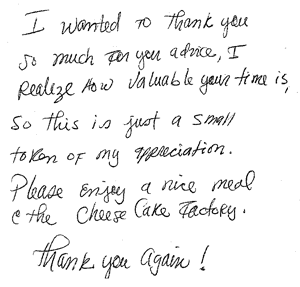 I wanted to thank you
so much for you advice, I
Realize How valuable your time is,
So this is just a small
token of my appreciation.
Please enjoy a nice meal
@ the Cheese Cake Factory.
Thank you Again!